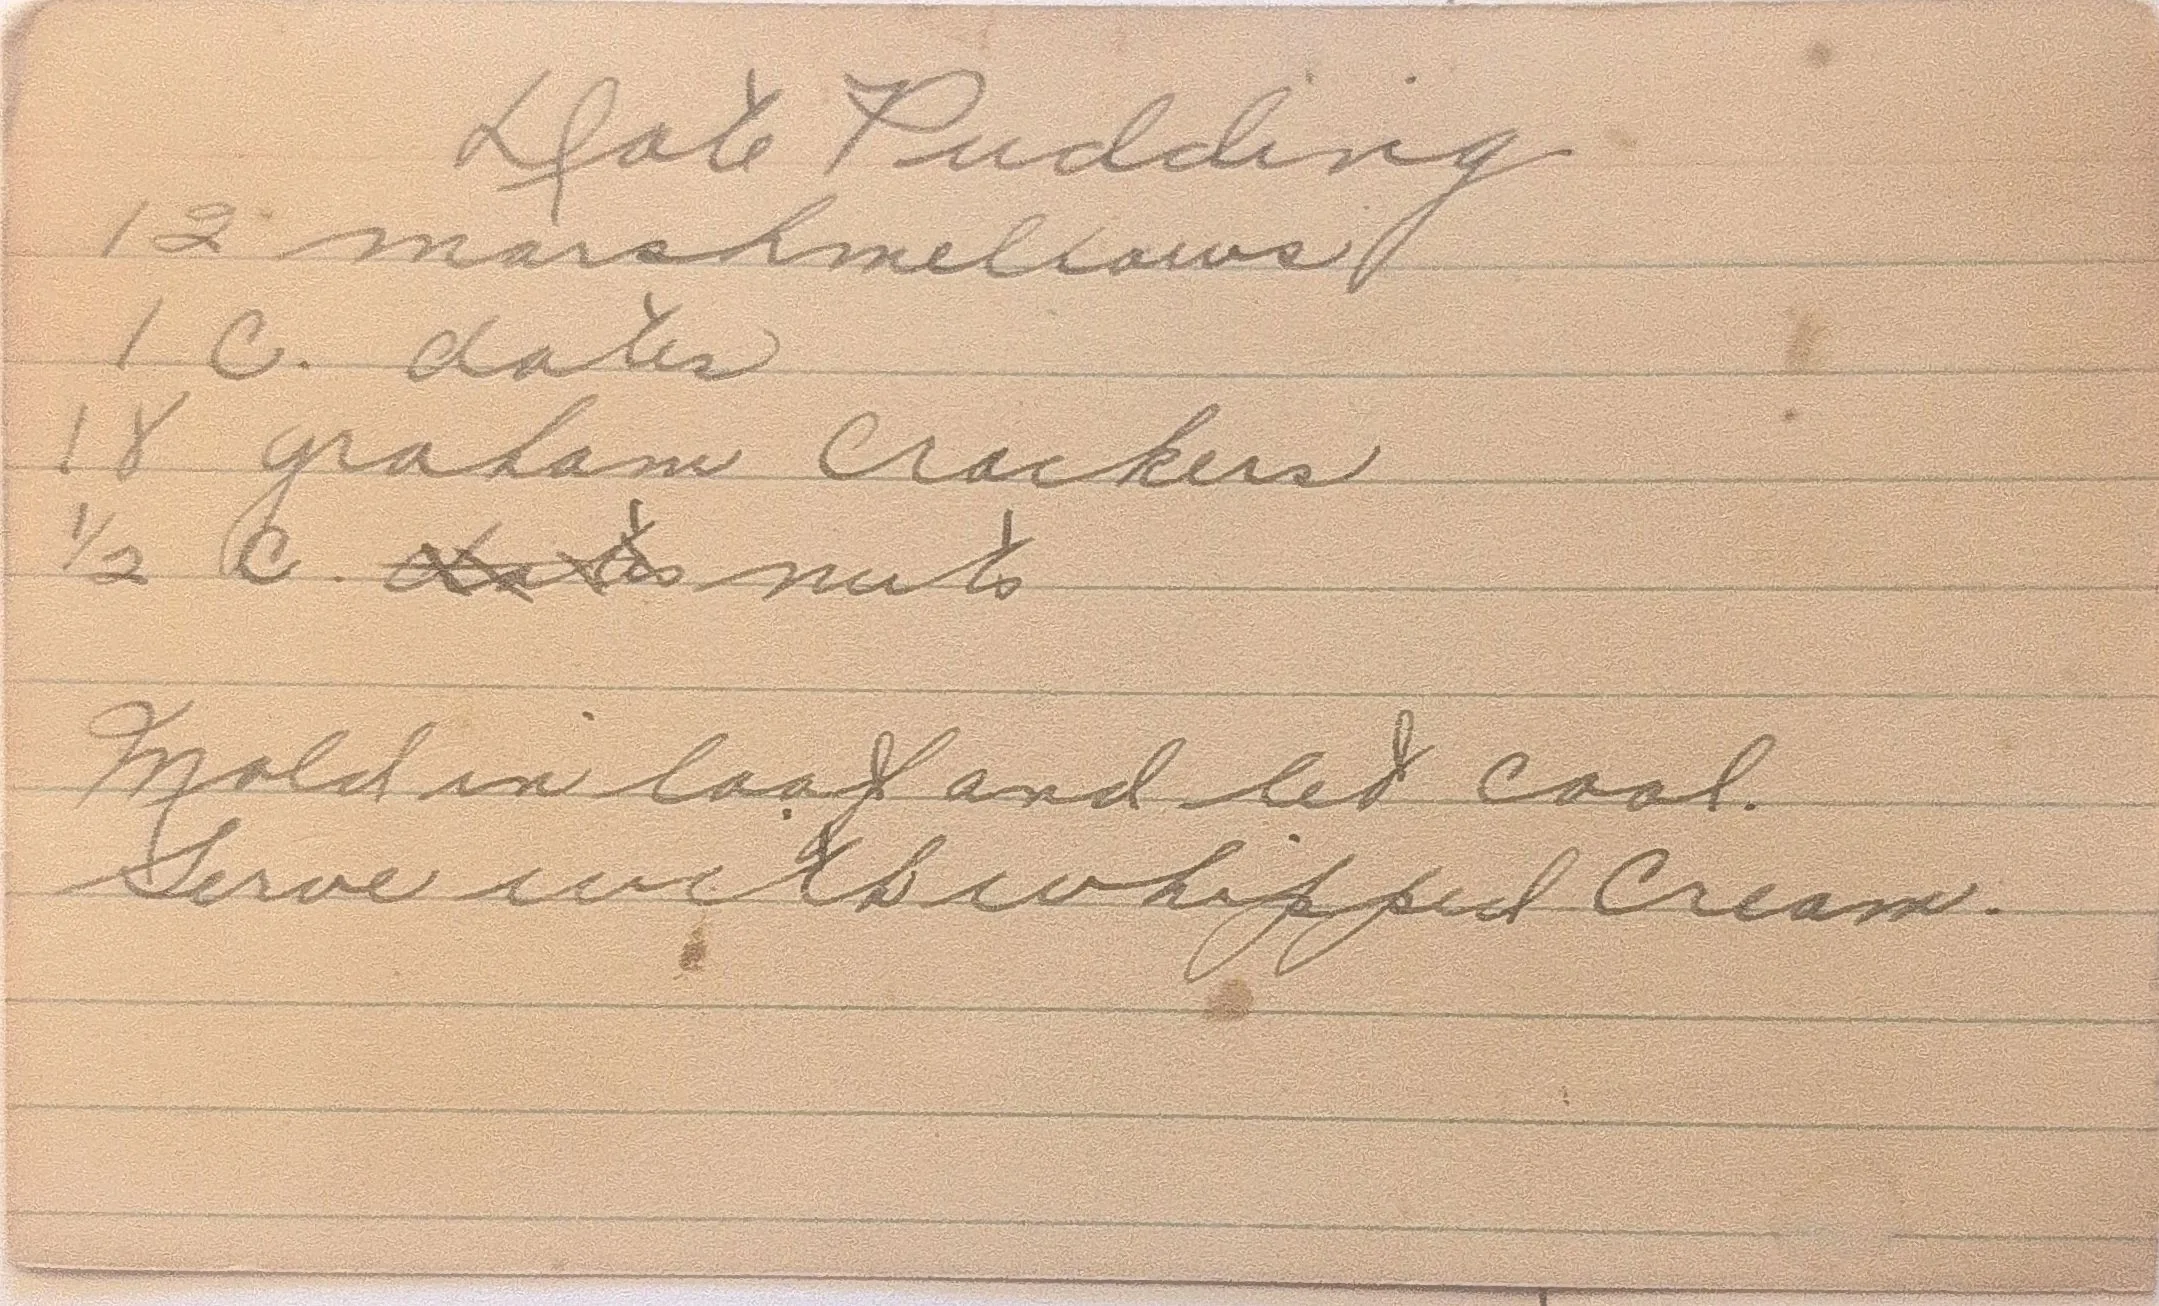 Date Pudding
12 marshmellows
1 C. dates
18 graham Crackers
1/2 C. dates nuts
Mold in loaf and let cool.
Serve with whipped Cream.